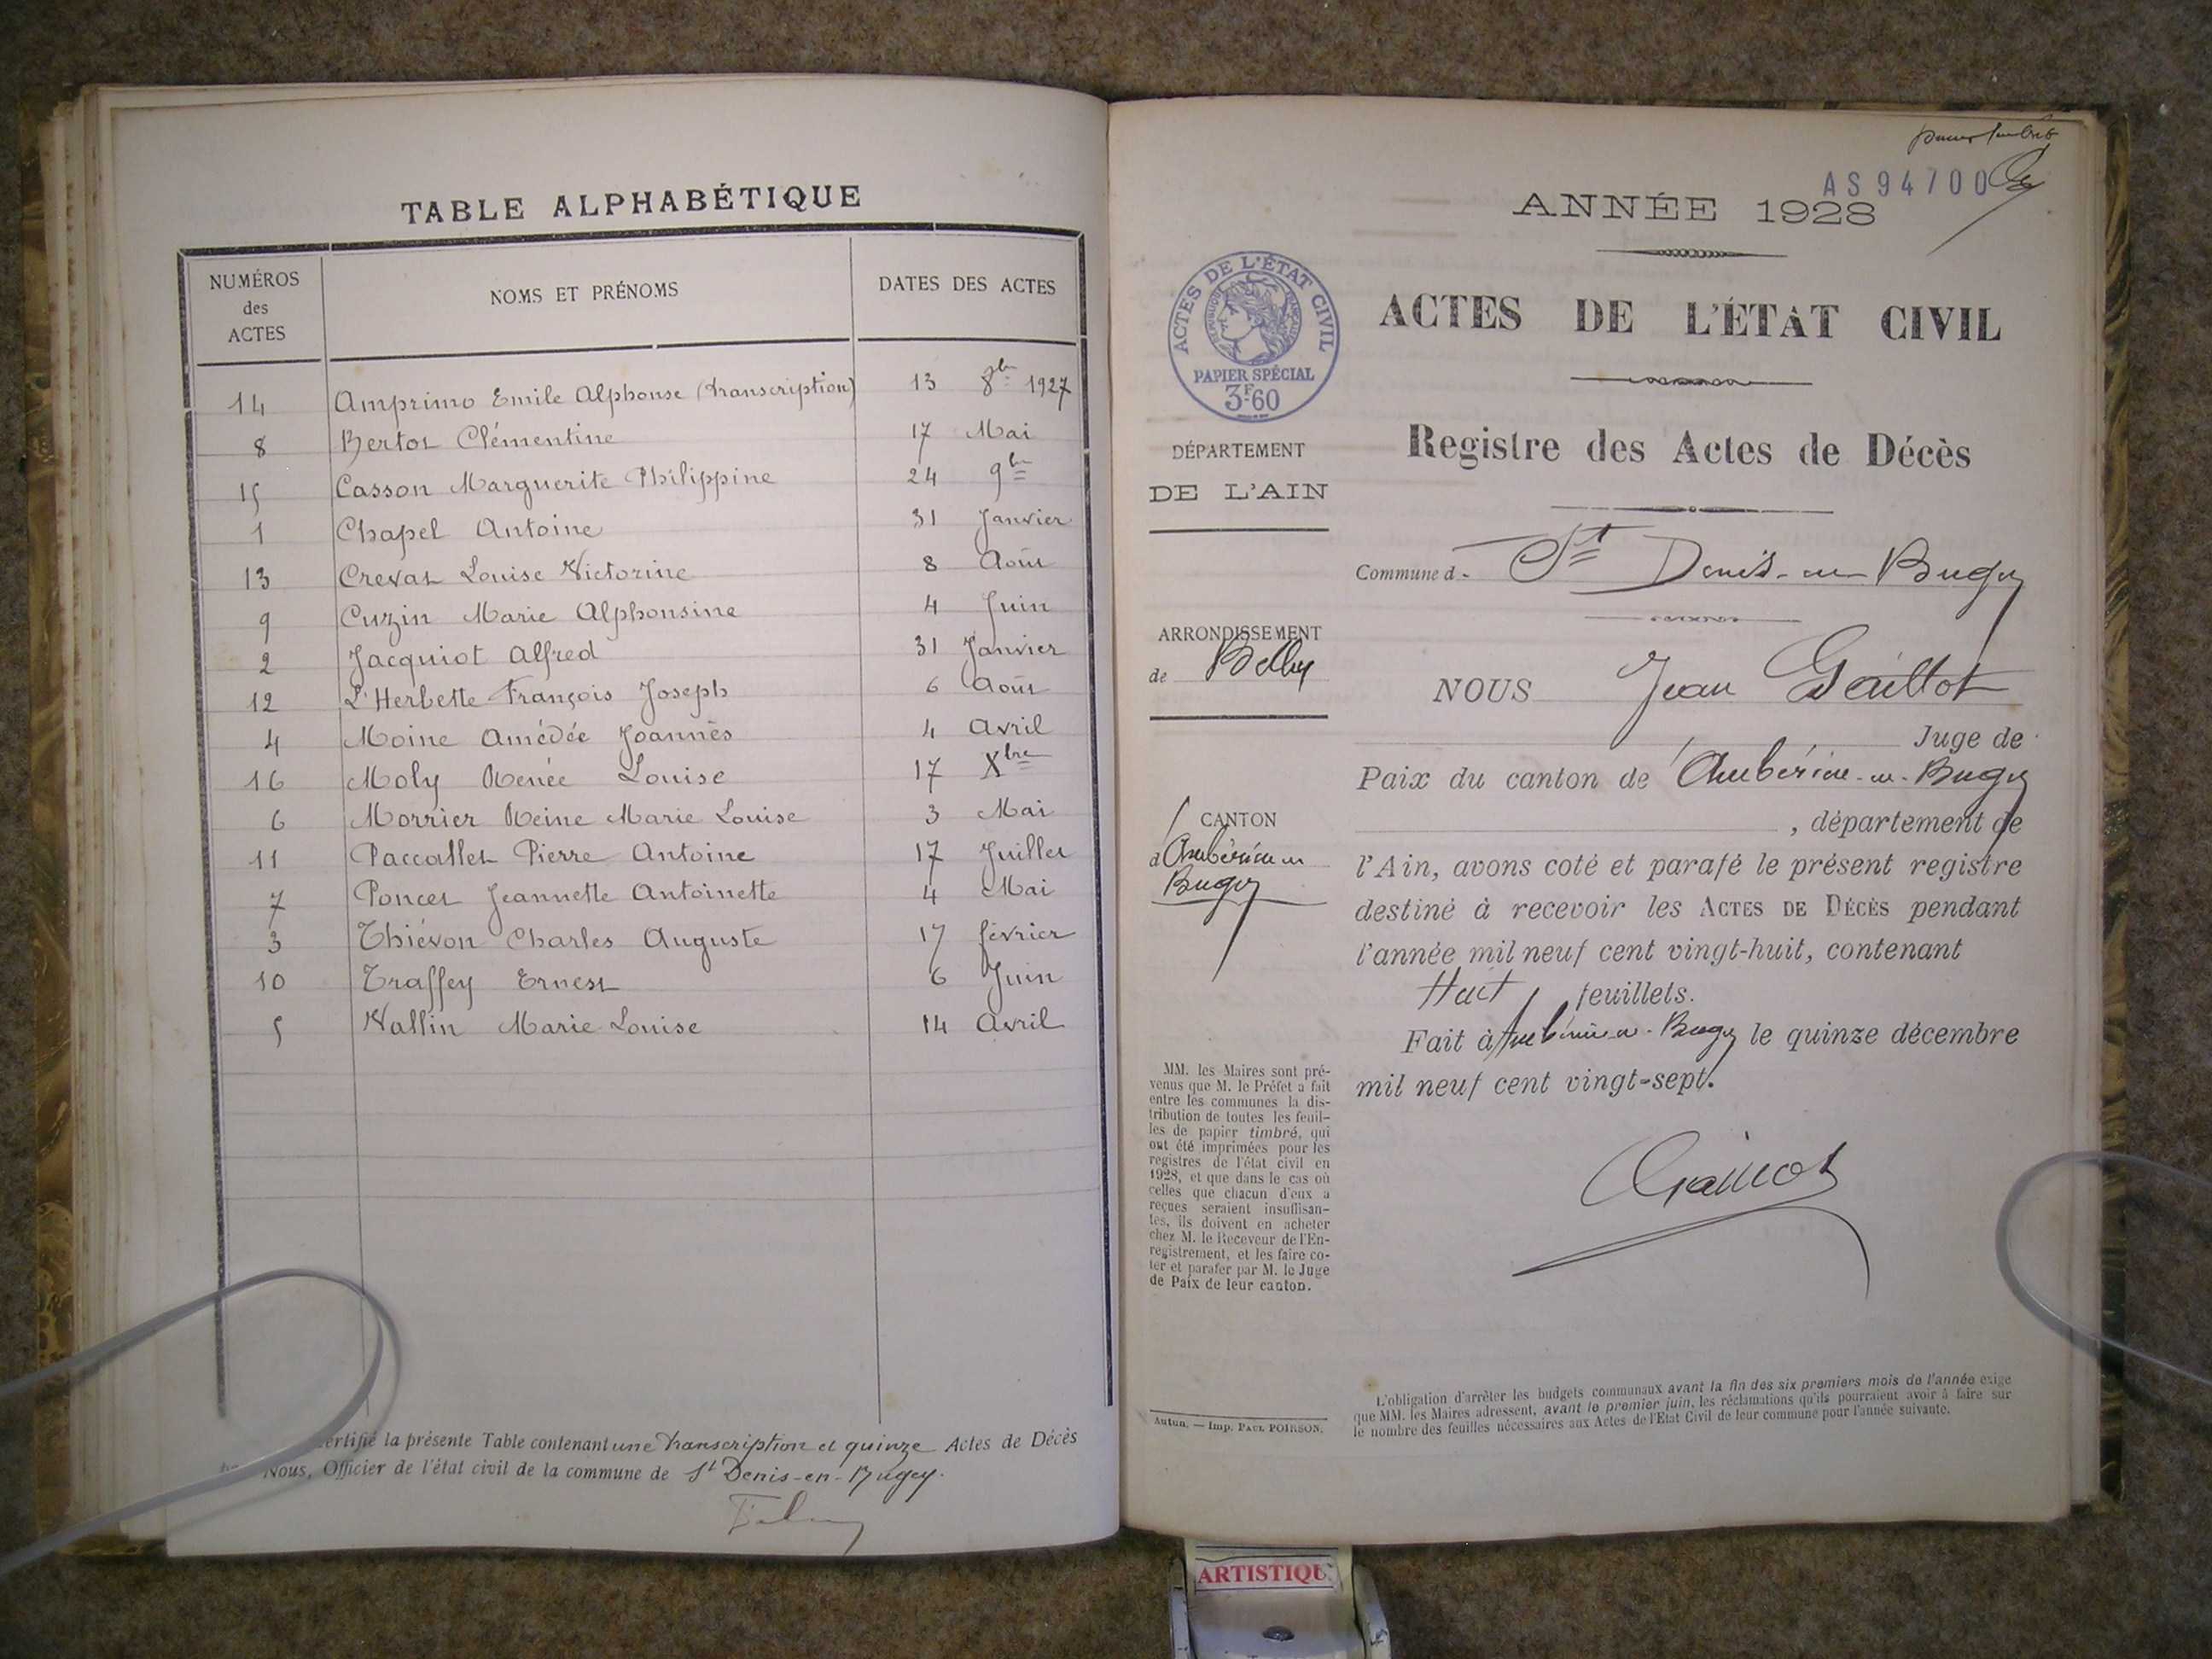 TABLE ALPHABÉTIQUE
NUMÉROS des ACTES NOMS ET PRÉNOMS DATES DES ACTES
14 Amprimo Emile Alphonse (transcription) 13 8bre 1927
8 Bertot Clémentine 17 Mai
15 Casson Marguerite Philippine 24 9bre
1 Chapel Antoine 31 Janvier
13 Crevat Louise Victorine 8 Août
9 Cuzin Marie Alphonsine 4 Juin
2 Jacquiot Alfred 31 Janvier
12 L'Herbette François Joseph 6 Août
4 Moine Amédée Joannès 4 Avril
16 Moly Renée Louise 17 Xbre
6 Morrier Reine Marie Louise 3 Mai
11 Paccallet Pierre Antoine 17 Juillet
7 Poncet Jeannette Antoinette 4 Mai
3 Thiévon Charles Auguste 17 février
10 Traffey Ernest 6 Juin
5 Vallin Marie Louise 14 Avril
certifié la présente Table contenant une transcription et quinze Actes de Décès
Nous, Officier de l'état civil de la commune de St Denis-en-Bugey.
AS 94700
ANNÉE 1928
ACTES DE L'ÉTAT CIVIL
RÉPUBLIQUE FRANÇAISE
PAPIER SPÉCIAL
3F60
ACTES DE L'ÉTAT CIVIL
Registre des Actes de Décès
DÉPARTEMENT
DE L'AIN
ARRONDISSEMENT
de Belley
CANTON
d'Ambérieu en
Bugey
MM. les Maires sont pré-
venus que M. le Préfet a fait
entre les communes la dis-
tribution de toutes les feuil-
les de papier timbré, qui
ont été imprimées pour les
registres de l'état civil en
1928, et que dans le cas où
celles que chacun d'eux a
reçues seraient insuffisan-
tes, ils doivent en acheter
chez M. le Receveur de l'En-
registrement, et les faire co-
ter et parafer par M. le Juge
de Paix de leur canton.
Autun. — Imp. PAUL POIRSON.
Commune d. St Denis-en-Bugey
NOUS Jean Gaillot
Juge de
Paix du canton de Ambérieu-en-Bugey
, département de
l'Ain, avons coté et parafé le présent registre
destiné à recevoir les ACTES DE DÉCÈS pendant
l'année mil neuf cent vingt-huit, contenant
Huit feuillets.
Fait à Ambérieu-en-Bugey le quinze décembre
mil neuf cent vingt-sept.
Gaillot
L'obligation d'arrêter les budgets communaux avant la fin des six premiers mois de l'année exige
que MM. les Maires adressent, avant le premier juin, les réclamations qu'ils pourraient avoir à faire sur
le nombre des feuilles nécessaires aux Actes de l'Etat Civil de leur commune pour l'année suivante.
ARTISTIQU